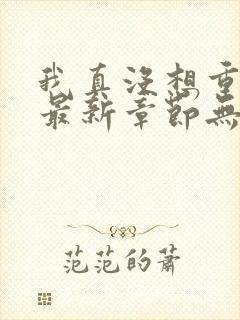 我真没想重
最新章节无
范范的萧